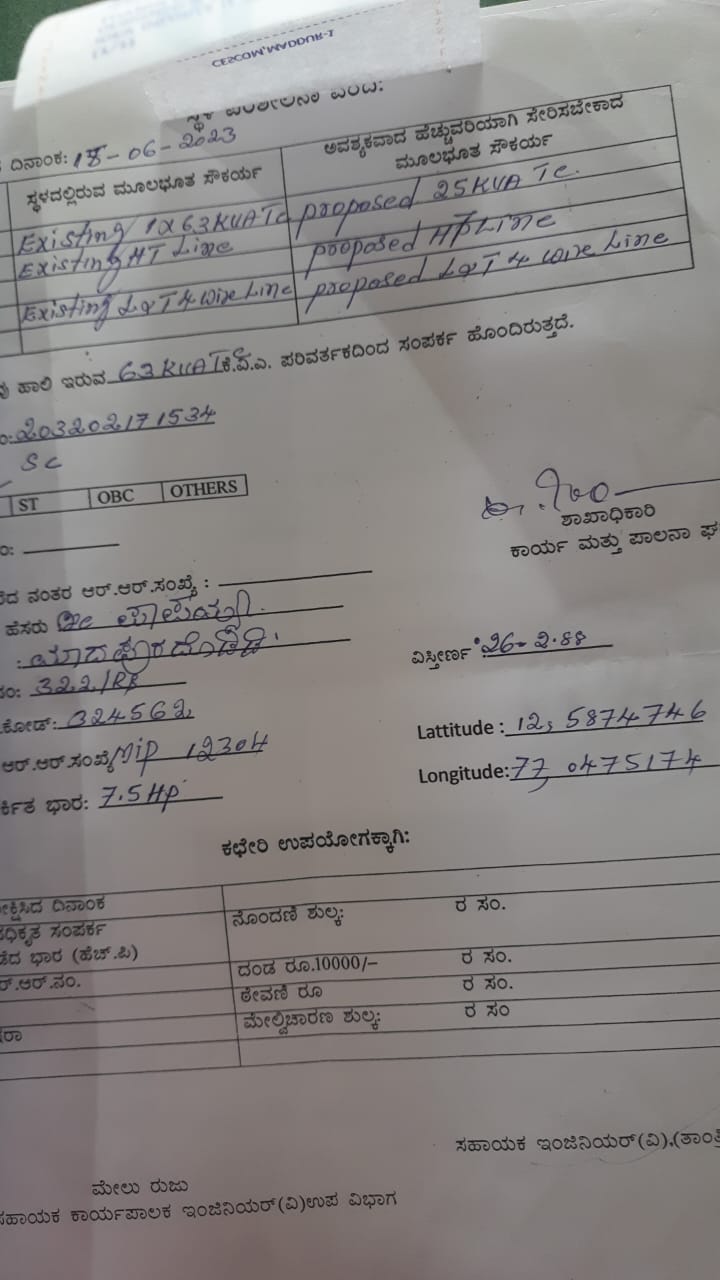 CESCOM,MADDUR-1
ಸ್ಥಳ ಪರಿಶೀಲನಾ ವರದಿ:
ದಿನಾಂಕ: 18-06-2023
ಸ್ಥಳದಲ್ಲಿರುವ ಮೂಲಭೂತ ಸೌಕರ್ಯ
ಅವಶ್ಯಕವಾದ ಹೆಚ್ಚುವರಿಯಾಗಿ ಸೇರಿಸಬೇಕಾದ
ಮೂಲಭೂತ ಸೌಕರ್ಯ
Existing 1x63KVA Tc proposed 25KVA Tc.
Existing HT Line proposed HT Line
Existing L&T 4 wire Line proposed L&T 4 wire Line
ಹಾಲಿ ಇರುವ 63 KVA Tc ಕೆ.ವಿ.ಎ. ಪರಿವರ್ತಕದಿಂದ ಸಂಪರ್ಕ ಹೊಂದಿರುತ್ತದೆ.
203202171534
SC
ST OBC OTHERS
ಶಾಖಾಧಿಕಾರಿ
ಕಾರ್ಯ ಮತ್ತು ಪಾಲನಾ ಘ
ನಂತರ ಆರ್.ಆರ್.ಸಂಖ್ಯೆ :
ಹೆಸರು
ವಿಸ್ತೀರ್ಣ: 26-2.88
ಸಂ: 322/
ಕೋಡ್: 324562
Lattitude : 12,5874746
ಆರ್.ಆರ್.ಸಂಖ್ಯೆ MIP 12304
Longitude: 77,0475174
ಭಾರ: 7.5 Hp
ಕಛೇರಿ ಉಪಯೋಗಕ್ಕಾಗಿ:
ಕ್ಷಿಸಿದ ದಿನಾಂಕ
ನೊಂದಣಿ ಶುಲ್ಕ: ರ ಸಂ.
ಧಿಕೃತ ಸಂಪರ್ಕ
ಡೆದ ಭಾರ (ಹೆಚ್.ಪಿ)
ದಂಡ ರೂ.10000/- ರ ಸಂ.
ರ್.ಆರ್.ನಂ.
ಠೇವಣಿ ರೂ ರ ಸಂ.
ಮೇಲ್ವಿಚಾರಣ ಶುಲ್ಕ: ರ ಸಂ
ಸಹಾಯಕ ಇಂಜಿನಿಯರ್(ವಿ),(ತಾಂತ್ರಿ
ಮೇಲು ರುಜು
ಸಹಾಯಕ ಕಾರ್ಯಪಾಲಕ ಇಂಜಿನಿಯರ್(ವಿ)ಉಪ ವಿಭಾಗ